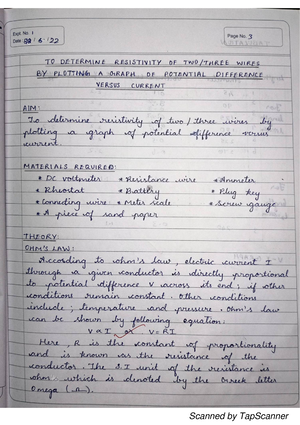 Expt. No. 1
Date 22/6/22
Page No. 3
TO DETERMINE RESISTIVITY OF TWO/THREE WIRES
BY PLOTTING A GRAPH OF POTENTIAL DIFFERENCE
VERSUS CURRENT
AIM:
To determine resistivity of two / three wires by
plotting a graph of potential difference versus
current.
MATERIALS REQUIRED:
* DC voltmeter * Resistance wire * Ammeter
* Rheostat * Battery * Plug key
* Connecting wire * Meter scale * Screw gauge
* A piece of sand paper
THEORY:
OHM'S LAW:
According to ohm's law, electric current I
through a given conductor is directly proportional
to potential difference V across its end; if other
conditions remain constant. Other conditions
include; temperature and pressure. Ohm's law
can be shown by following equation:
V ∝ I or V = RI
Here, R is the constant of proportionality
and is known as the resistance of the
conductor. The S.I unit of the resistance is
ohm which is denoted by the Greek letter
Omega (Ω).
Scanned by TapScanner